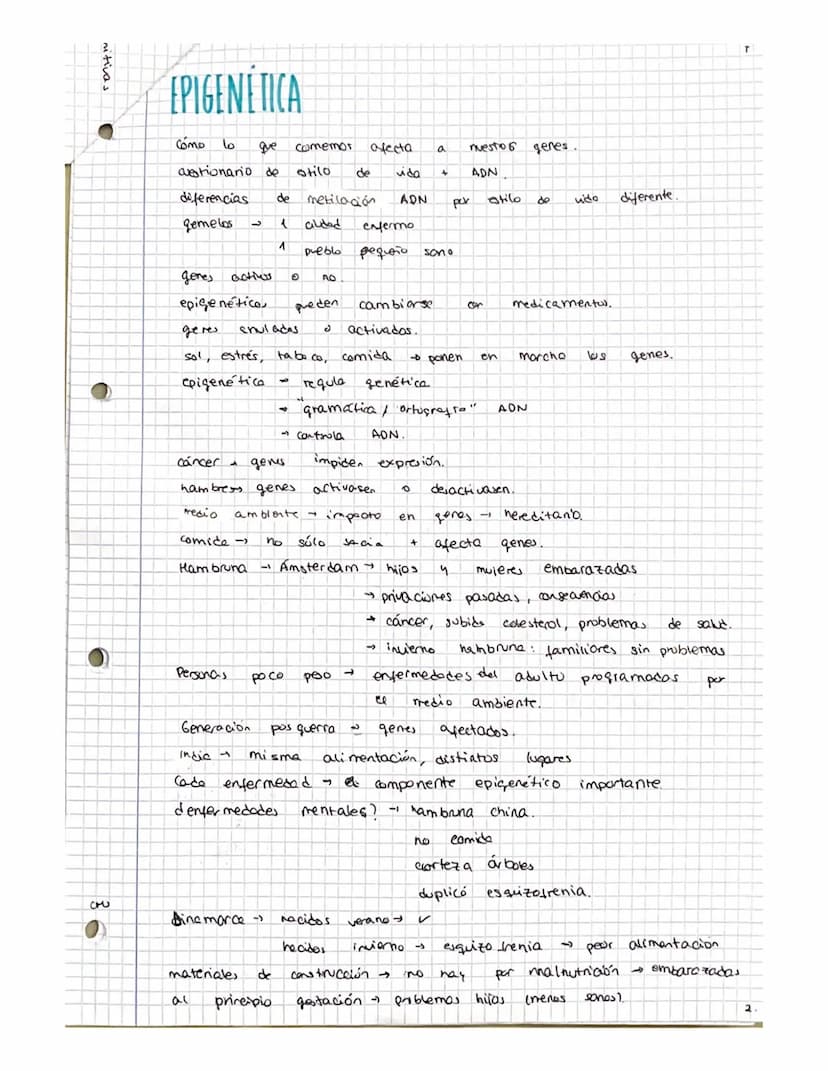 nticas
EPIGENÉTICA
Cómo lo que comemos afecta a nuestos genes.
cuestionario de estilo de vida + ADN.
diferencias de metilación ADN por estilo de vida diferente.
gemelos → 1 ciudad enfermo
1 pueblo pequeño sano
genes activos o no.
epigenéticos pueden cambiarse con medicamentos.
genes anulados o activados.
sol, estrés, tabaco, comida → ponen en marcha los genes.
epigenética → regula genética
→ "gramática / ortografía" ADN
→ controla ADN.
cáncer → genes impiden expresión.
hambre → genes activasen o desactivasen.
medio ambiente → impacto en genes → hereditario.
comida → no sólo sacia + afecta genes.
Hambruna → Ámsterdam → hijos y mujeres embarazadas
→ privaciones pasadas, consecuencias
→ cáncer, subida colesterol, problemas de salud.
→ invierno hambruna: familiares sin problemas
Personas poco peso → enfermedades del adulto programadas por
el medio ambiente.
Generación posguerra → genes afectados.
India → misma alimentación, distintos lugares
Cada enfermedad → componente epigenético importante
¿enfermedades mentales? → hambruna china.
no comida
corteza árboles
duplicó esquizofrenia.
Dinamarca → nacidos verano → ✓
nacidos invierno → esquizofrenia → peor alimentación
materiales de construcción → no hay por malnutrición → embarazadas
al principio gestación → problemas hijos (menos sanos).
2.